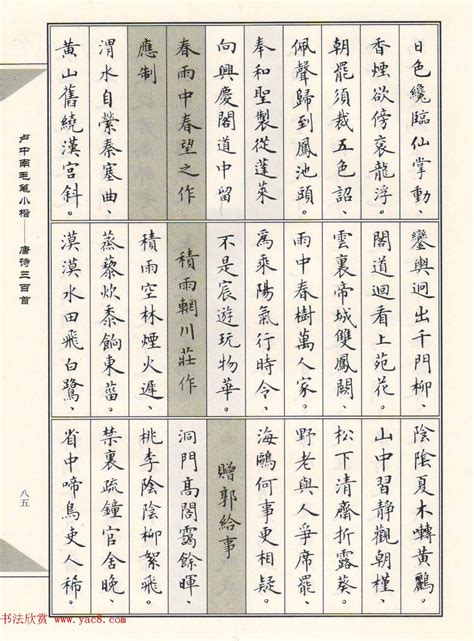 日色纔臨仙掌動、
香煙欲傍袞龍浮。
朝罷須裁五色詔、
佩聲歸到鳳池頭。
奉和聖製從蓬萊
向興慶閣道中留
春雨中春望之作
應制
渭水自縈秦塞曲、
黃山舊繞漢宮斜。
鑾輿迥出千門柳、
閣道迴看上苑花。
雲裏帝城雙鳳闕、
雨中春樹萬人家。
為乘陽氣行時令、
不是宸遊玩物華。
積雨輞川莊作
積雨空林煙火遲、
蒸藜炊黍餉東菑。
漠漠水田飛白鷺、
陰陰夏木囀黃鸝。
山中習靜觀朝槿、
松下清齋折露葵。
野老與人爭席罷、
海鷗何事更相疑。
贈郭給事
洞門高閣靄餘暉、
桃李陰陰柳絮飛。
禁裏疏鐘官舍晚
省中啼鳥吏人稀。
卢中南毛笔小楷——唐诗三百首
八五
书法欣赏 www.yac8.com